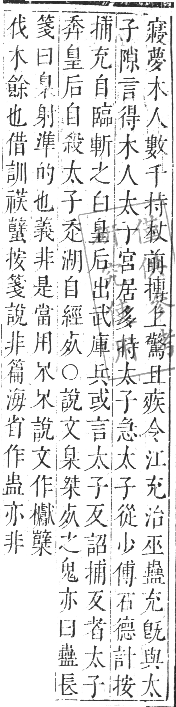 寢夢木人數千持杖前擿上驚且疾令江充治巫蠱充旣與太
子隙言得木人太丁宮居多時太子急太子從少傅石德計按
捕充自臨斬之白皇后出武庫兵或言太子反詔捕反者太子
奔皇后自殺太子至湖自經㱙〇說文臬桀㱙之鬼亦曰蠱長
箋曰臬射準的也義非是當用不不說文作巘櫱
伐木餘也借訓䄏蠥按箋說非篇海省作蛊亦非